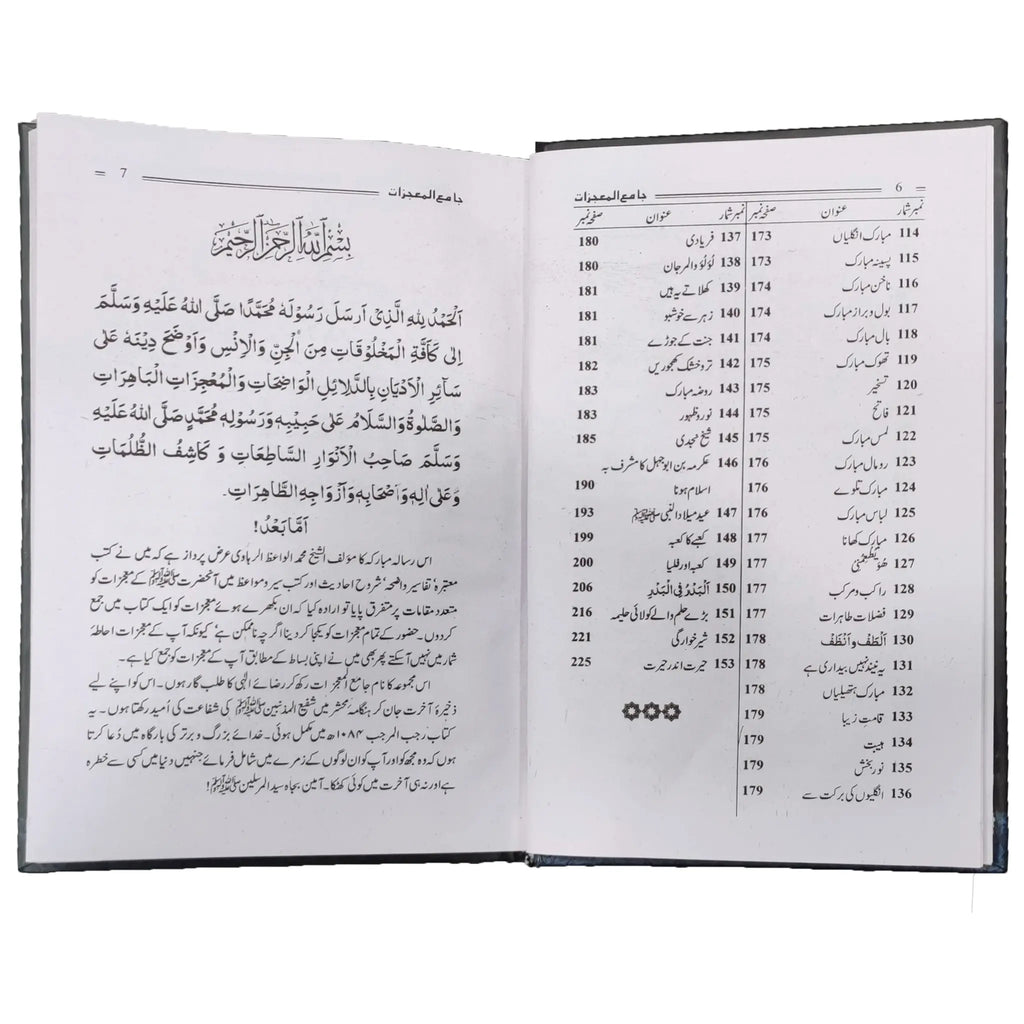 6
جامع المعجزات
نمبر شمار عنوان صفحہ نمبر
114 مبارک انگلیاں 173
115 پسینہ مبارک 173
116 ناخن مبارک 174
117 بول و براز مبارک 174
118 بال مبارک 174
119 تھوک مبارک 175
120 تسخیر 175
121 فاتح 175
122 لمس مبارک 175
123 رومال مبارک 176
124 مبارک تلوے 176
125 لباس مبارک 176
126 مبارک کھانا 177
127 ھُوَ یُطْعِمُنِیْ 177
128 راکب و مرکب 177
129 فضلات طاہرات 177
130 اَلْطَفُ وَ اَنْظَفُ 178
131 یہ نیند نہیں بیداری ہے 178
132 مبارک ہتھیلیاں 178
133 قامت زیبا 179
134 ہیبت 179
135 نور بخش 179
136 انگلیوں کی برکت سے 179
نمبر شمار عنوان صفحہ نمبر
137 فریادی 180
138 لُؤلُؤ والمرجان 180
139 کھلاتے یہ ہیں 181
140 زہر سے خوشبو 181
141 جنت کے جوڑے 181
142 تر و خشک کھجوریں 182
143 روضہ مبارک 183
144 نور و ظہور 183
145 شیخ مجدی 185
146 عکرمہ بن ابوجہل کا مشرف بہ
اسلام ہونا 190
147 عید میلاد النبی ﷺ 193
148 کعبے کا کعبہ 199
149 کعبہ اور فلیا 200
150 اَلْبَدْرُ فِی الْبَدْرِ 206
151 بڑے حلم والے کو لائی حلیمہ 216
152 شیر خوارگی 221
153 حیرت اندر حیرت 225
7
جامع المعجزات
بِسْمِ اللّٰهِ الرَّحْمٰنِ الرَّحِيْمِ
اَلْحَمْدُ لِلّٰهِ الَّذِیْ اَرْسَلَ رَسُوْلَهٗ مُحَمَّدًا صَلَّى اللهُ عَلَيْهِ وَسَلَّمَ
اِلٰى كَآفَّةِ الْمَخْلُوْقَاتِ مِنَ الْجِنِّ وَالْاِنْسِ وَاَوْضَحَ دِيْنَهٗ عَلٰى
سَآئِرِ الْاَدْيَانِ بِالدَّلَائِلِ الْوَاضِحَاتِ وَالْمُعْجِزَاتِ الْبَاهِرَاتِ
وَالصَّلٰوةُ وَالسَّلَامُ عَلٰى حَبِيْبِهٖ وَرَسُوْلِهٖ مُحَمَّدٍ صَلَّى اللهُ عَلَيْهِ
وَسَلَّمَ صَاحِبُ الْاَنْوَارِ السَّاطِعَاتِ وَ كَاشِفُ الظُّلُمَاتِ
وَعَلٰى اٰلِهٖ وَاَصْحَابِهٖ وَاَزْوَاجِهِ الطَّاهِرَاتِ۔
اَمَّا بَعْدُ!
اس رسالہ مبارکہ کا مؤلف الشیخ محمد الواعظ الرہاوی عرض پرداز ہے کہ میں نے کتب
معتبرہ، تفاسیر واضحہ، شروح احادیث اور کتب سیر و مواعظ میں آنحضرت ﷺ کے معجزات کو
متعدد مقامات پر متفرق پایا تو ارادہ کیا کہ ان بکھرے ہوئے معجزات کو ایک کتاب میں جمع
کردوں۔ حضور کے تمام معجزات کو یکجا کر دینا اگرچہ ناممکن ہے، کیونکہ آپ کے معجزات احاطۂ
شمار میں نہیں آسکتے پھر بھی میں نے اپنی بساط کے مطابق آپ کے معجزات کو جمع کیا ہے۔
اس مجموعہ کا نام جامع المعجزات رکھ کر رضائے الٰہی کا طلب گار ہوں۔ اس کو اپنے لیے
ذخیرۂ آخرت جان کر ہنگامۂ محشر میں شفیع المذنبین ﷺ کی شفاعت کی اُمید رکھتا ہوں۔ یہ
کتاب رجب المرجب ۱۰۸۴ھ میں مکمل ہوئی۔ خدائے بزرگ و برتر کی بارگاہ میں دُعا کرتا
ہوں کہ وہ مجھ کو اور آپ کو ان لوگوں کے زمرے میں شامل فرمائے جنہیں دنیا میں کسی سے خطرہ
ہے اور نہ ہی آخرت میں کوئی کھٹکا۔ آمین بجاہ سید المرسلین ﷺ!